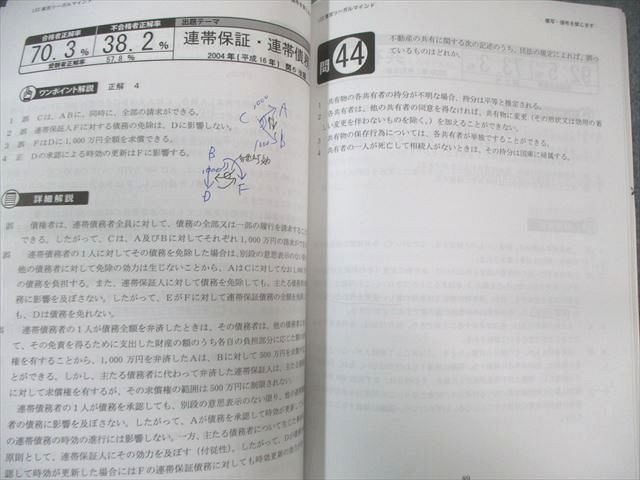 LEC東京リーガルマインド
合格者正解率
不合格者正解率
出題テーマ
70.3%
38.2%
連帯保証・連帯債務
受験者正解率
57.8%
2004年(平成16年)
ワンポイント解説
正解 4
1 誤 Cは、ABに、同時に、全部の請求ができる。
2 誤 連帯保証人Fに対する債務の免除は、Dに影響しない。
3 誤 FはDに1,000万円を求償できる。
4 正 Dの承認による時効の更新はFに影響する。
C
A
b
B
D
F
詳細解説
債権者は、連帯債務者全員に対して、債務の全部又は一部の履行を請求する
できる。したがって、Cは、A及びBに対してそれぞれ1,000万円の請求ができ
連帯債務者の1人に対してその債務を免除した場合は、別段の意思表示のない
他の債務者に対して免除の効力は生じないことから、AはCに対してなお
の債務を負担する。また、連帯保証人に対して債務を免除しても、主たる債務
務に影響を及ぼさない。したがって、EがFに対して連帯保証債務の全額を免除
も、Dは債務を免れない。
連帯債務者の1人が債務全額を弁済したときは、その債務者は、他の債務者に
て、その免責を得るために支出した財産の額のうち各自の負担部分に応じた額
権を有することから、1,000万円を弁済したAは、Bに対して500万円を求償
とができる。しかし、主たる債務者に代わって弁済した連帯保証人は、主たる
に対して求償権を有するが、その求償権の範囲は500万円に制限されない。
連帯債務者の1人が債務を承認しても、別段の意思表示のない限り、他の連帯
者の債務に影響を及ぼさない。したがって、Aが債務を承認して時効が更新して
の連帯債務の時効の進行には影響しない。一方、主たる債務者について生じた
原則として、連帯保証人にその効力を及ぼす(付従性)。したがって、Dが債務
認して時効が更新した場合にはFの連帯保証債務に対しても時効更新の効力
LEC東京リーガルマインド
問44
不動産の共有に関する次の記述のうち、民法の規定によれば、誤っ
ているものはどれか。
1 共有物の各共有者の持分が不明な場合、持分は平等と推定される。
2 各共有者は、他の共有者の同意を得なければ、共有物に変更(その形状又は効用の著
しい変更を伴わないものを除く。)を加えることができない。
3 共有物の保存行為については、各共有者が単独ですることができる。
4 共有者の一人が死亡して相続人がないときは、その持分は国庫に帰属する。